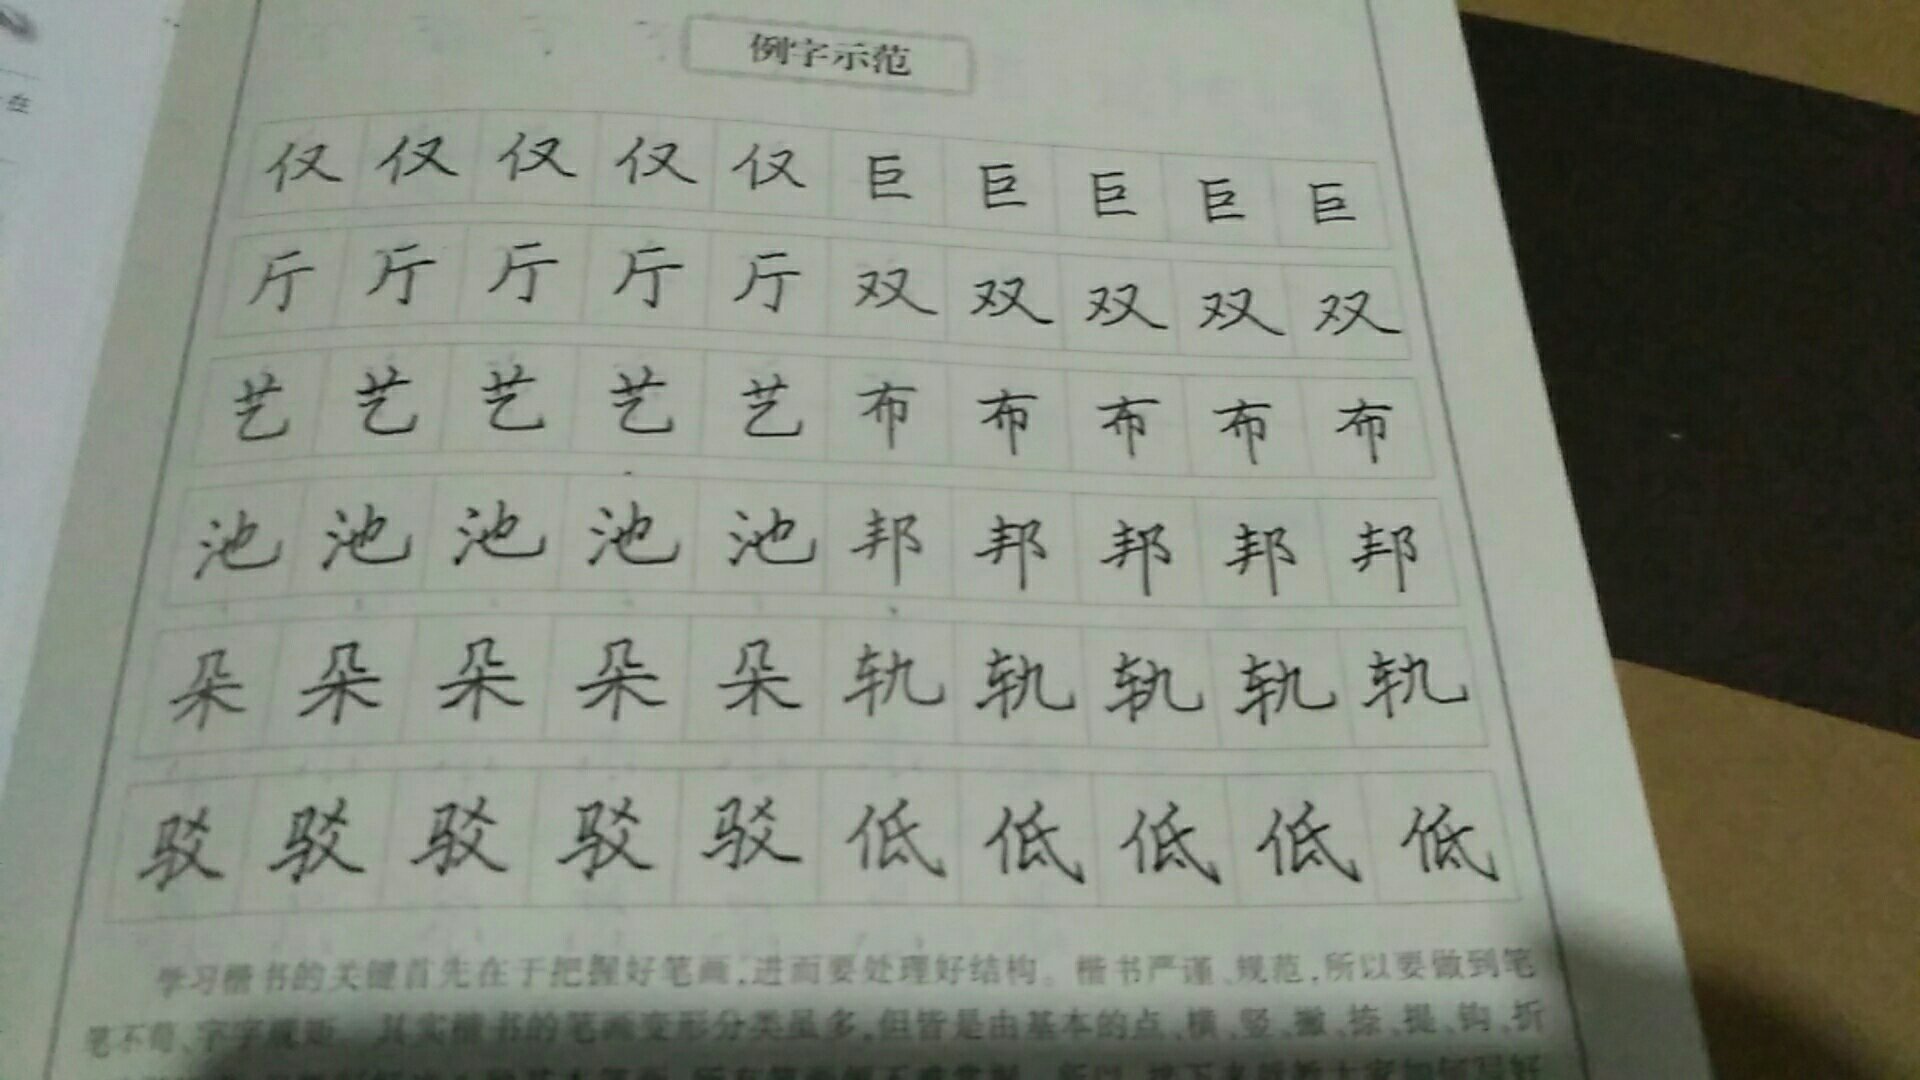 在
例字示范
仅仅仅仅仅巨巨巨巨巨
厅厅厅厅厅双双双双双
艺艺艺艺艺布布布布布
池池池池池邦邦邦邦邦
朵朵朵朵朵轨轨轨轨轨
驳驳驳驳驳低低低低低
学习楷书的关键首先在于把握好笔画,进而要处理好结构。楷书严谨、规范,所以要做到笔
笔不苟、字字规矩。其实楷书的笔画变形分类虽多,但皆是由基本的点、横、竖、撇、捺、提、钩、折